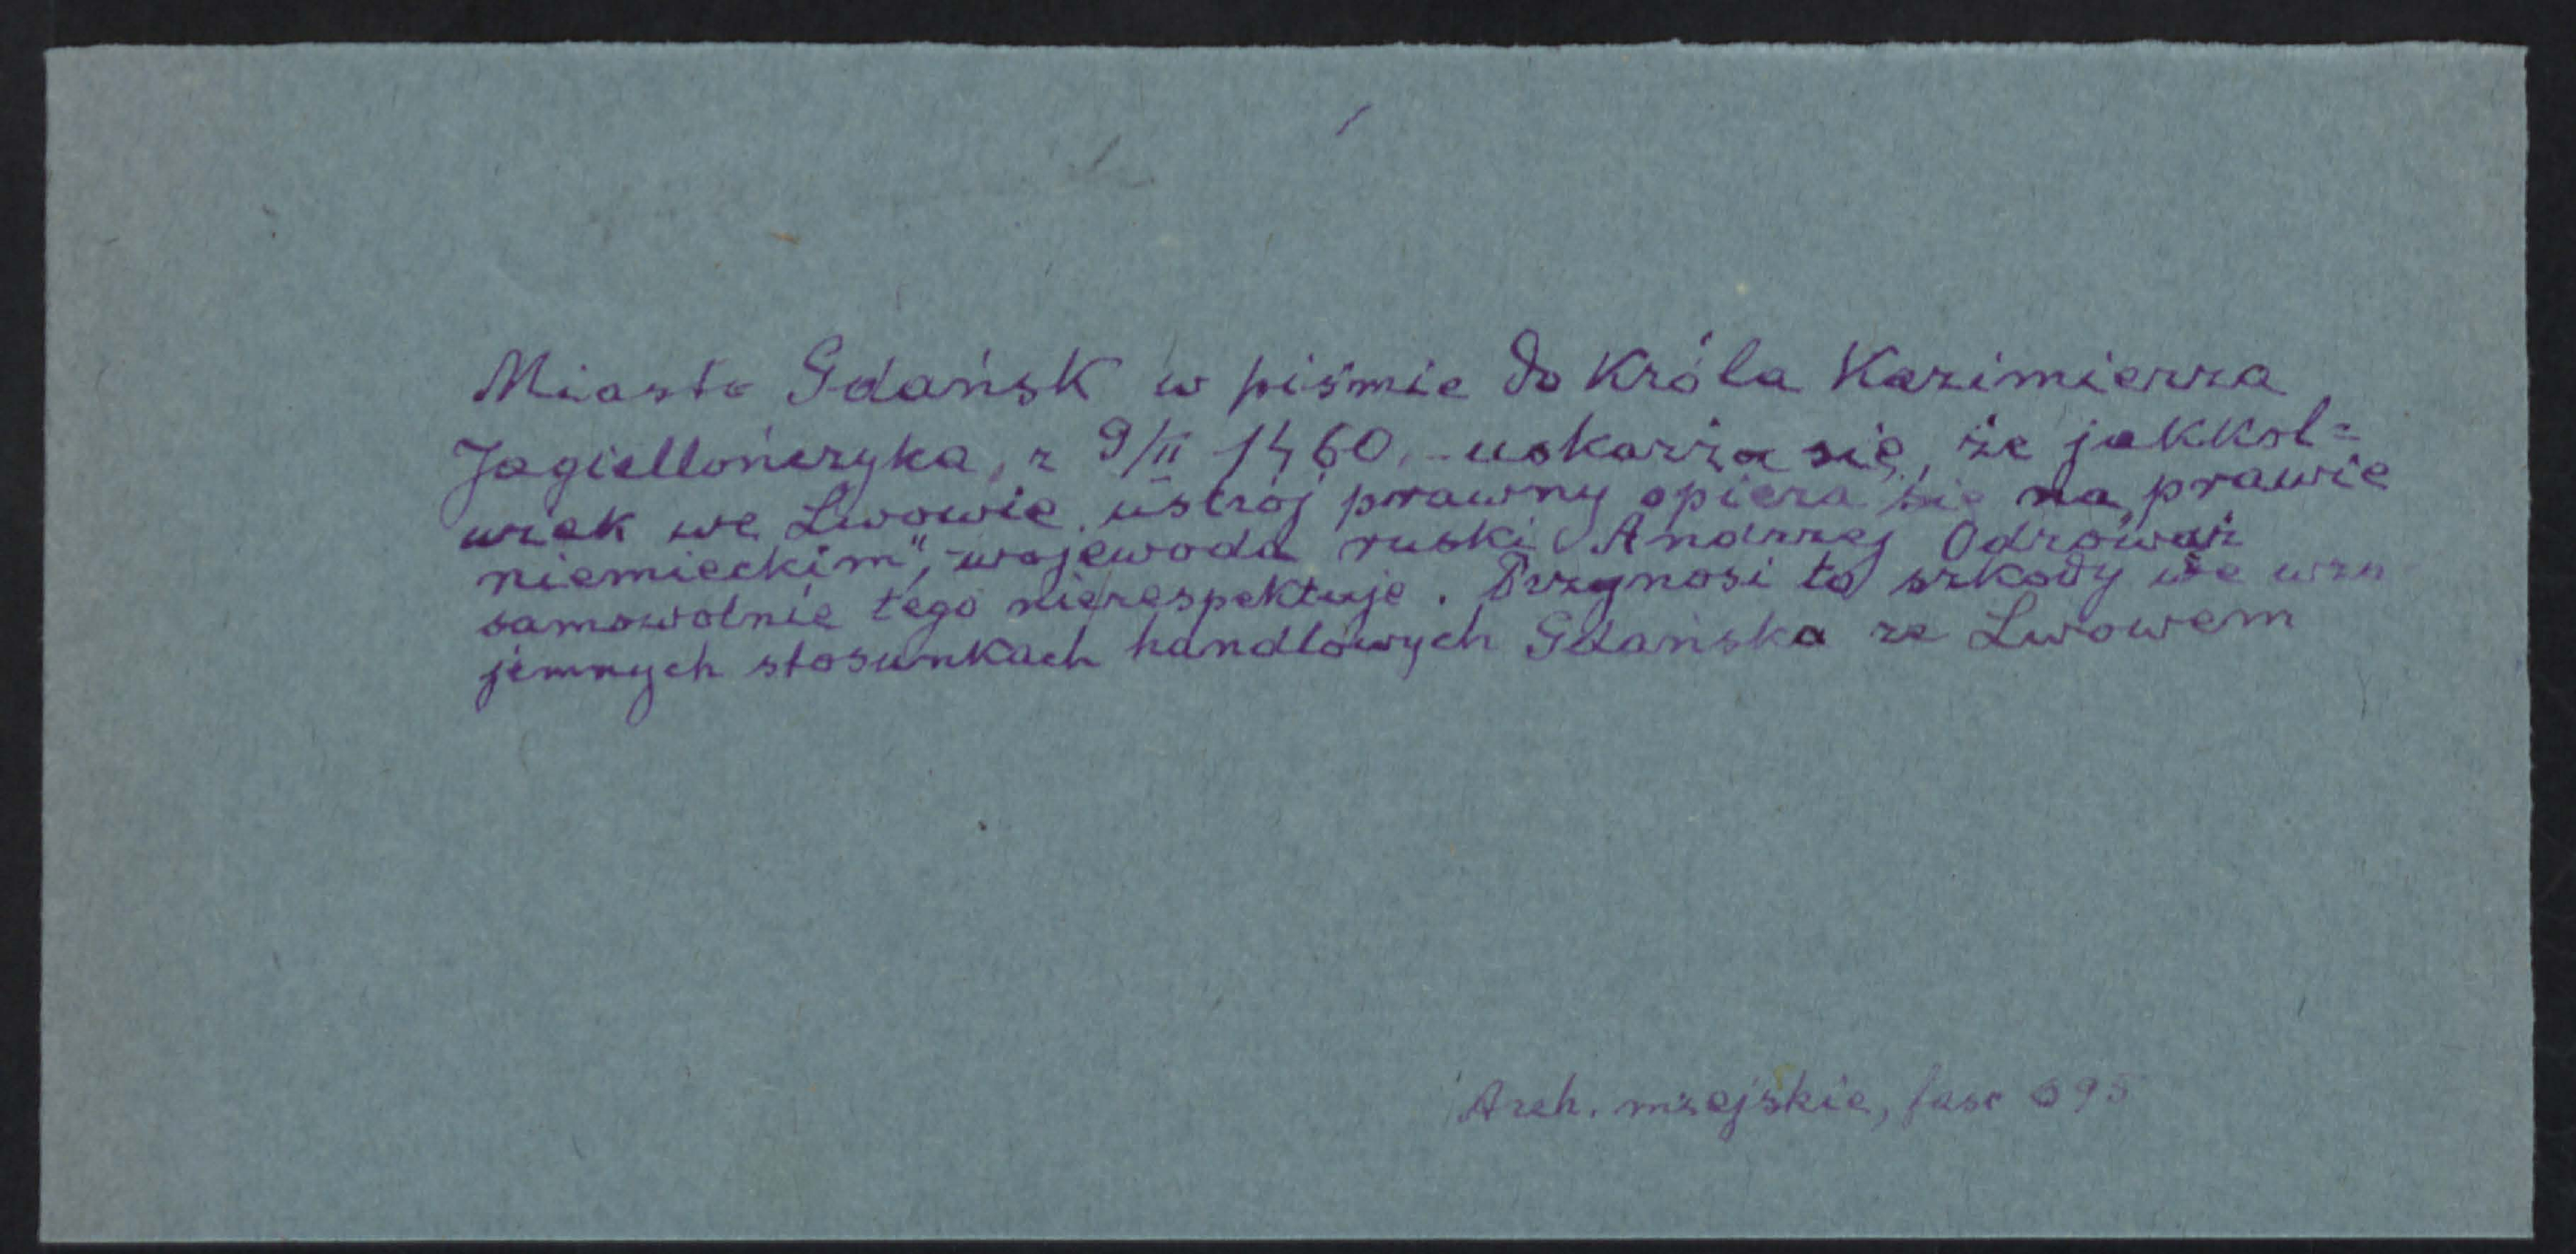 Miasto Gdańsk w piśmie do Króla Kazimierza
Jagiellończyka, z 9/II 1460, - uskarża się, że jakkol=
wiek we Lwowie ustrój prawny opiera się na „prawie
niemieckim", - wojewoda ruski Andrzej Odrowąż
samowolnie tego nierespektuje. Przynosi to szkody we wza
jemnych stosunkach handlowych Gdańska ze Lwowem
Arch. miejskie, fasc 695